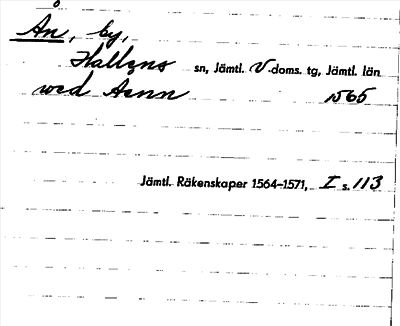 Ån, by,
Hallens sn, Jämtl. V doms. tg, Jämtl. län
wed Aenn 1565
Jämtl. Räkenskaper 1564–1571, I s. 113